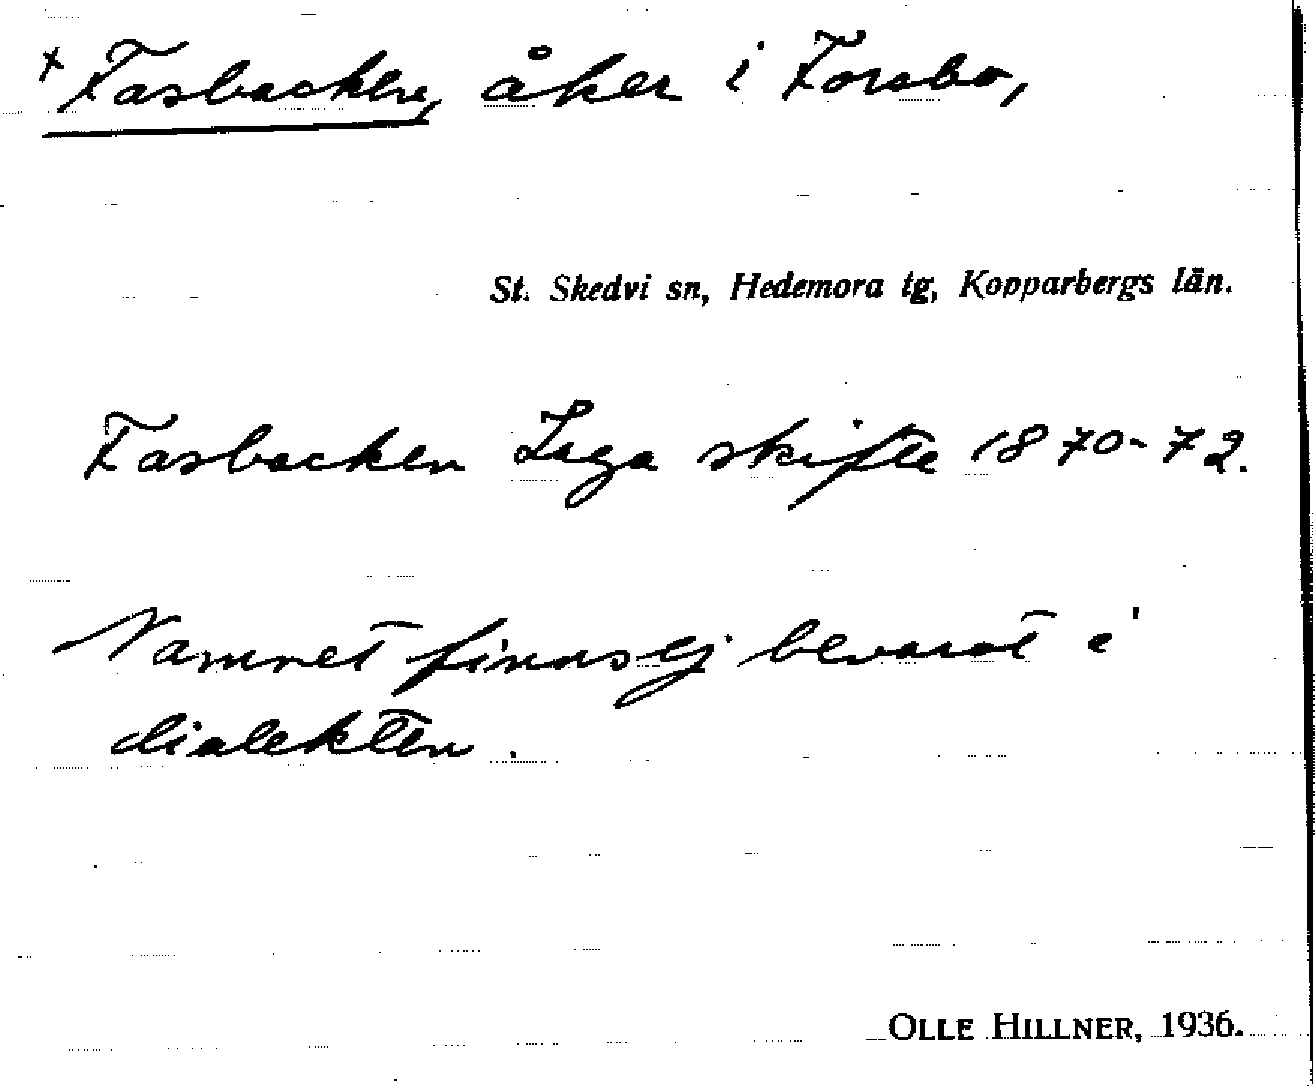 x Fasbacken, åker i Forsbo,
St. Skedvi sn, Hedemora tg, Kopparbergs län.
Fasbacken Laga skifte 1870-72.
Namnet finns ej bevarat i
dialekten.
OLLE HILLNER, 1936.